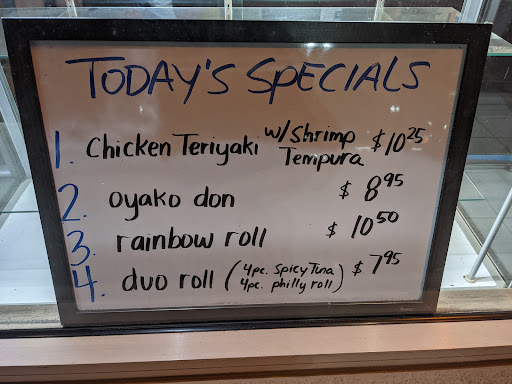 TODAY'S SPECIALS
1. Chicken Teriyaki w/ Shrimp Tempura $10.25
2. oyako don $8.95
3. rainbow roll $10.50
4. duo roll (4pc. Spicy Tuna) $7.95
4pc. philly roll